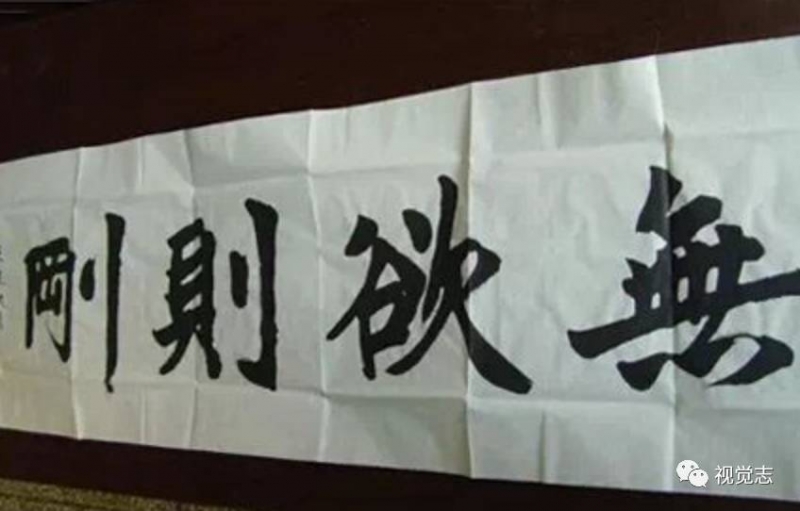 無欲則剛
视觉志